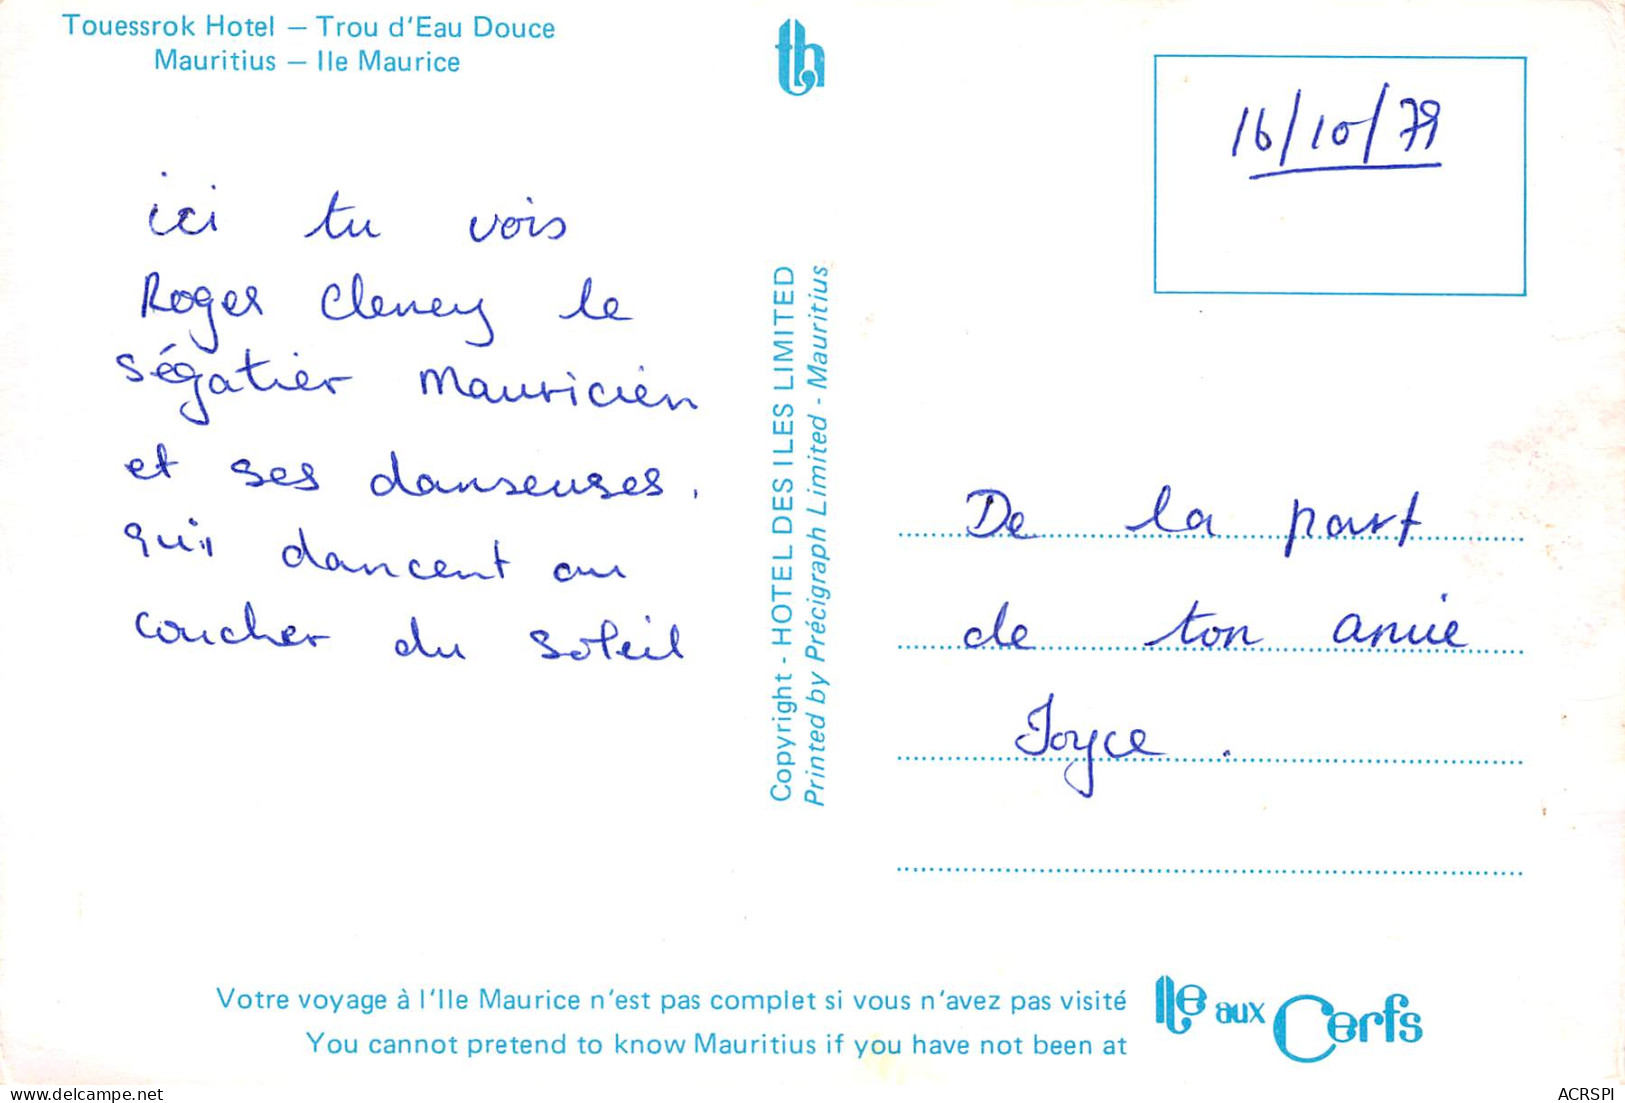 Touessrok Hotel – Trou d'Eau Douce
Mauritius – Ile Maurice
th
16/10/79
ici tu vois
Roger Cleney le
ségatier Mauricien
et ses danseuses,
qui dancent au
coucher du soleil
Copyright - HOTEL DES ILES LIMITED
Printed by Précigraph Limited - Mauritius
De la part
de ton amie
Joyce.
Votre voyage à l'Ile Maurice n'est pas complet si vous n'avez pas visité
You cannot pretend to know Mauritius if you have not been at
Ile aux Cerfs
ACRSPI